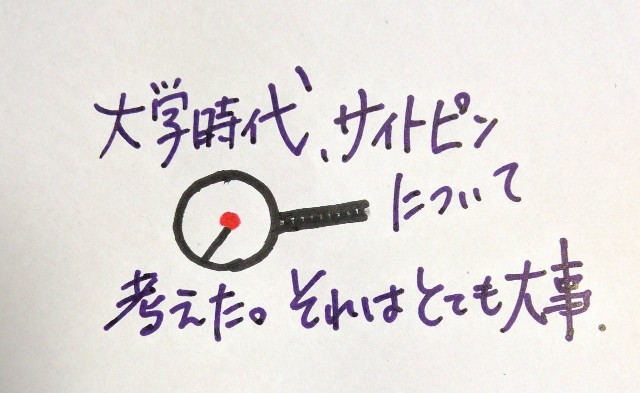 大学時代、サイトピン
について
考えた。それはとても大事.